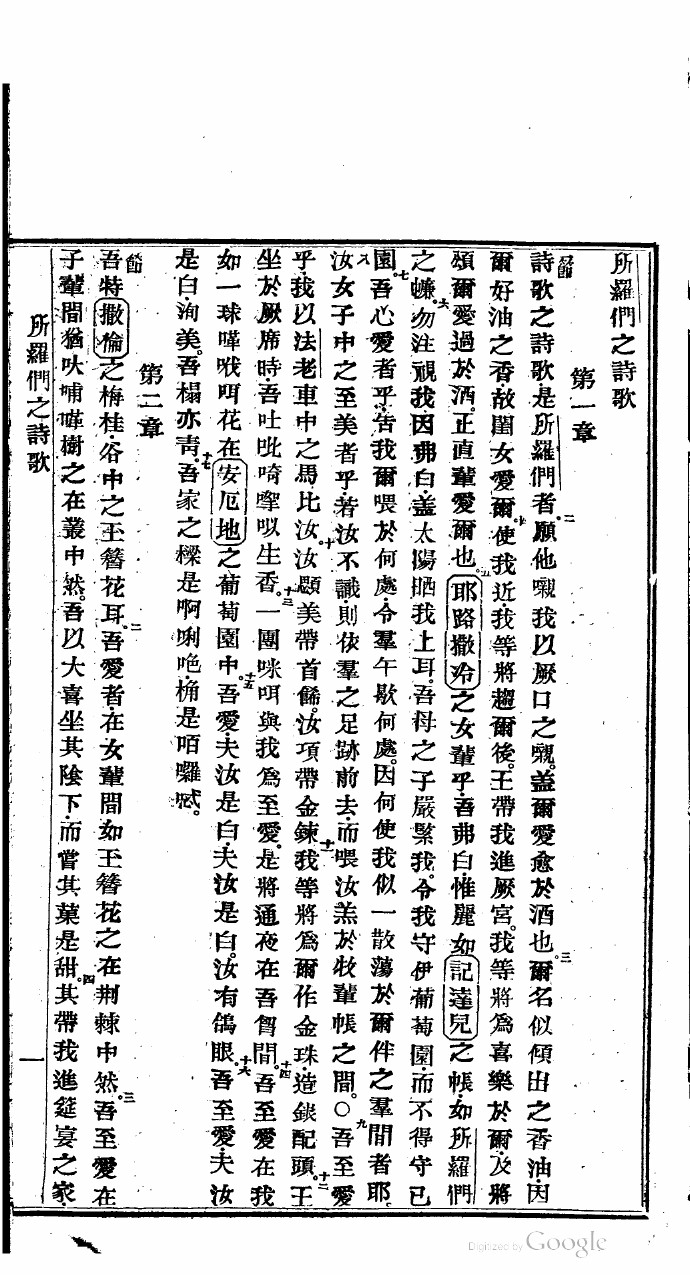 所羅們之詩歌
第一章
節詩歌之詩歌是所羅們者二願他嚫我以厥口之嚫。盖爾愛愈於酒也三爾名似傾出之香油因
爾好油之香故閨女愛爾四使我近我等將趨爾後。王帶我進厥宮。我等將爲喜樂於爾及將
頌爾愛過於酒。正直輩愛爾也。五耶路撒冷之女輩乎吾弗白惟麗如記達兒之帳如所羅們
之幪六勿注視我因弗白盖太陽晒我上耳。吾母之子嚴緊我令我守伊葡萄園而不得守已
園。七吾心愛者乎告我爾喂於何處令羣午歇何處。因何使我似一散蕩於爾伴之羣間者耶
八汝女子中之至美者乎若汝不識則依羣之足跡前去而喂汝羔於牧輩帳之間。〇九吾至愛
乎我以法老車中之馬比汝十汝顋美帶首餙。汝項帶金鍊十一我等將爲爾作金珠造錟配頭。十二王
坐於厥席時吾吐吡唥嚤呅生香。十三一團咪咡與我爲至愛。是將通夜在吾胷間。十四吾至愛在我
如一球嗶㗂咡花在安厄地之葡萄園中十五吾愛夫汝是白夫汝是白。汝有鴿眼。十六吾至愛夫汝
是白洵美。吾榻亦靑。十七吾家之樑是啊唎吔桷是咟囉㖔。
第二章
節吾特撒倫之梅桂谷中之玉簪花耳。二吾愛者在女輩間如玉簪花之在荆棘中然。三吾至愛在
子輩間猶吙哺嘩樹之在叢中然。吾以大喜坐其陰下而嘗其菓是甜。四其帶我進筵宴之家
所羅們之詩歌
一
Digitized by Google